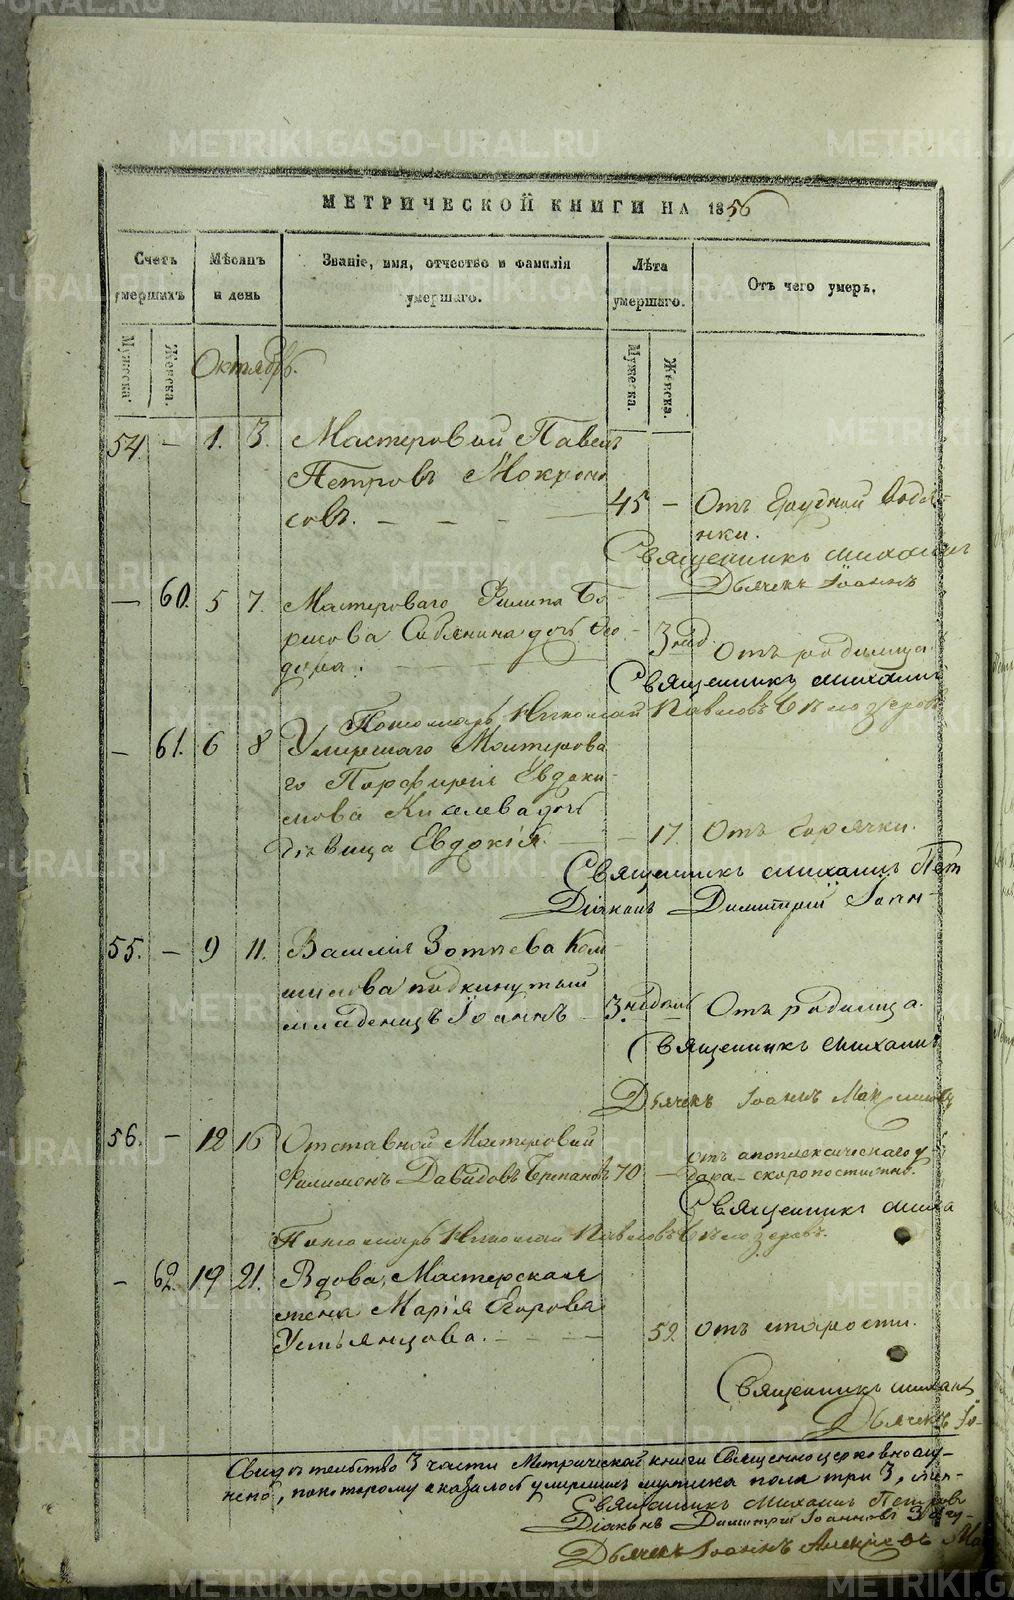 МЕТРИЧЕСКОЙ КНИГИ НА 1856
Счетъ умершихъ
Мѣсяцъ и день
Званіе, имя, отчество и фамилія умершаго.
Лѣта умершаго.
Отъ чего умеръ.
Мужеска.
Женска.
Мужеска.
Женска.
Октябрь.
54. — 1. 3. Мастеровой Павелъ
Петровъ Мокроно
совъ. — — — 45 — Отъ грудной водя-
нки.
Священникъ Михаилъ
Дьячекъ Іоаннъ
— 60. 5 7. Мастероваго Филипа Бо
рисова Сибянина дочь Ѳео-
дора. — — — 3 нѣд. Отъ родимца.
Священникъ Михаилъ
Пономарь Николай Павловъ Бѣлозеровъ
— 61. 6 8 Умершаго Мастерова
го Порфирія Евдоки-
мова Киселева дочь
дѣвица Евдокія. — 17. Отъ горячки.
Священникъ Михаилъ Пет
Діаконъ Димитрій Іоан-
55. — 9 11. Василія Зотѣева
подкинутый
младенецъ Іоаннъ 3 недѣль Отъ родимца.
Священникъ Михаилъ
Дьячекъ Іоаннъ
56. — 12 16 Отставной Мастеровой
Филимонъ Давидовъ 70 — отъ апоплексическаго у-
дара - скоропостижно.
Священникъ Миха
Пономарь Николай Павловъ Бѣлозеровъ.
— 62. 19 21. Вдова, Мастерская
жена Марія Егорова
Устьянцова. — — — 59. Отъ старости.
Священникъ Михаил
Дьячекъ Іо-
Свидѣтельство 3 части Метрической книги Священноцерковнослу-
по которому оказалось умершихъ мужска пола три 3, жен-
Священникъ Михаилъ Петровъ
Діаконъ Димитрій Іоанновъ
Дьячекъ Іоаннъ
METRIKI.GASO-URAL.RU